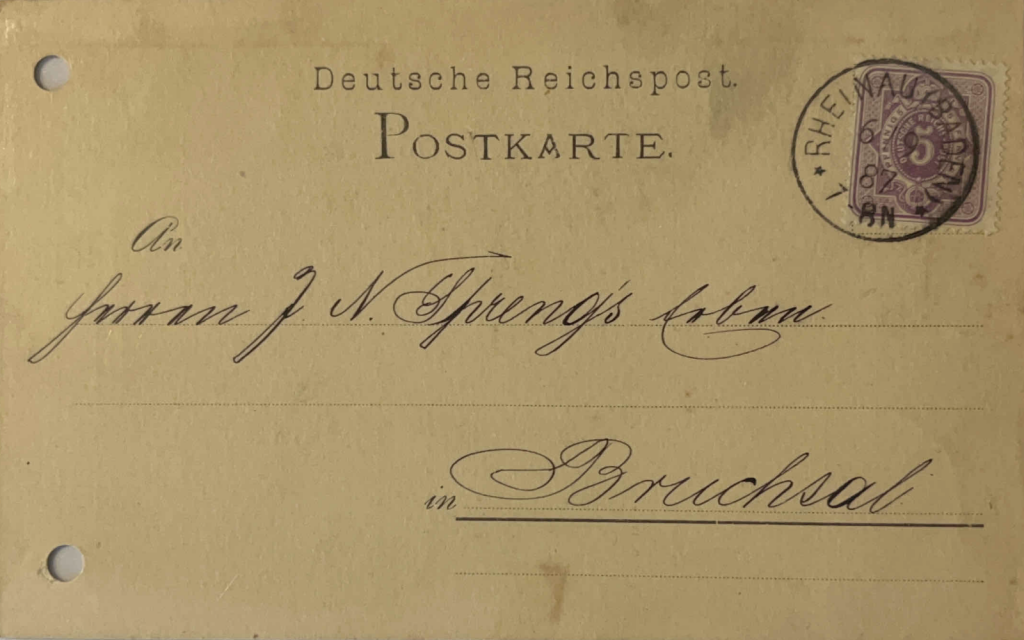 Deutsche Reichspost.
POSTKARTE.
RHEINAU (BADEN)
6 9
87
1 - 8 N
An
Herren J. N. Spreng's Erben
in Bruchsal